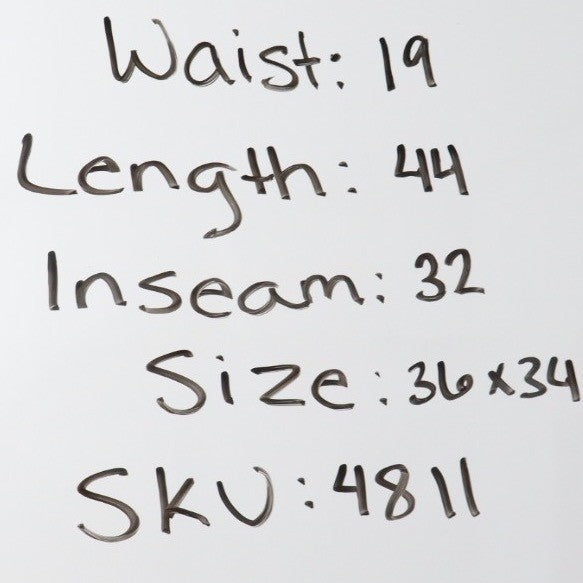 Waist: 19
Length: 44
Inseam: 32
Size: 36x34
SKU: 4811